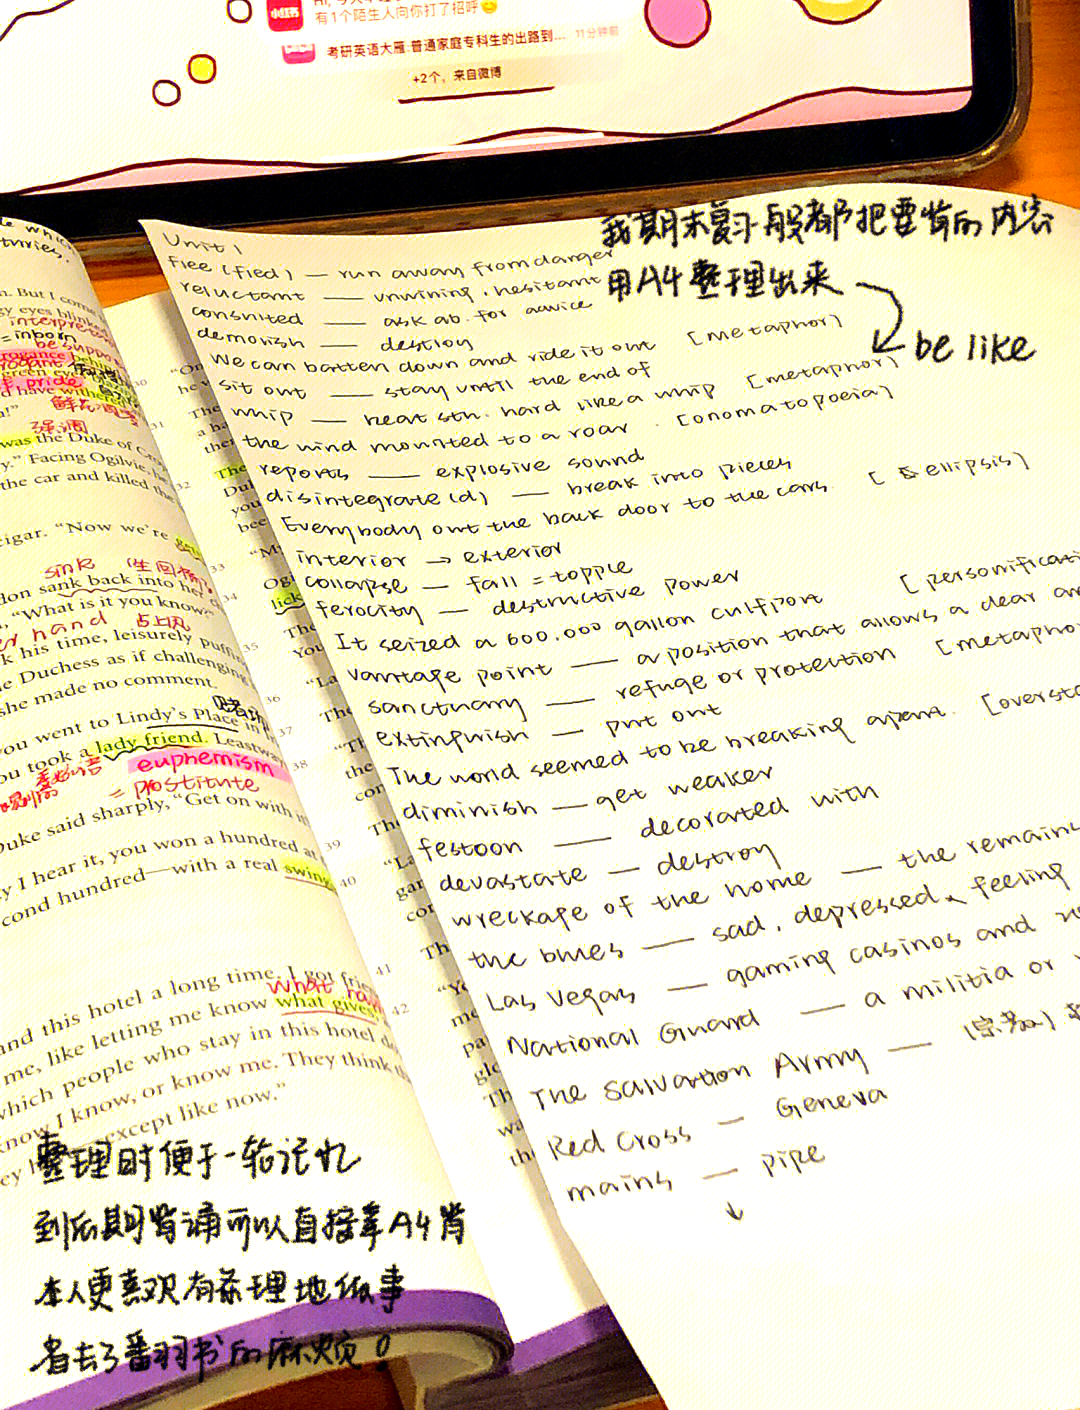 小红书
有1个陌生人向你打了招呼😊
考研英语大雁:普通家庭专科生的出路到... 11分钟前
+2个，来自微博
我期末复习一般都把要背的内容
用A4整理出来
be like
Unit 1
flee (fled) — run away from danger
reluctant — unwilling, hesitant
consulted — ask ab. for advice
demolish — destroy
We can batten down and ride it out [metaphor]
sit out — stay until the end of
whip — beat sth. hard like a whip [metaphor]
the wind mounted to a roar. [onomatopoeia]
reports — explosive sound
disintegrate(d) — break into pieces
Everybody out the back door to the cars. [ellipsis]
interior → exterior
collapse — fall = topple
ferocity — destructive power
It seized a 600,000 gallon culfport [personificati
vantage point — a position that allows a clear an
sanctuary — refuge or protection [metapho
extinguish — put out
The world seemed to be breaking apart. [oversta
diminish — get weaker
festoon — decorated with
devastate — destroy
wreckage of the home — the remains
the blues — sad, depressed, feeling
Las Vegas — gaming casinos and
National Guard — a militia or
The Salvation Army — (宗教)
Red Cross — Geneva
mains — pipe
↓
n. But I com
gy eyes blinke
interprete
=inborn
be suppo
pride
have wither
鲜花凋零
强调
was the Duke of Cro
y." Facing Ogilvie, he
the car and killed the
cigar. "Now we're
sink
don sank back into her
"What is it you know?
er hand 占上风
k his time, leisurely puff
e Duchess as if challenging
she made no comment.
you went to Lindy's Place in
ou took a lady friend. Leastway
euphemism
= prostitute
Duke said sharply, "Get on with it
y I hear it, you won a hundred at
cond hundred—with a real swing
and this hotel a long time. I got frie
what
me, like letting me know what gives
which people who stay in this hotel do
know I know, or know me. They think
except like now."
30
31
32
33
34
35
36
37
38
39
40
41
42
整理时便于一轮记忆
到后期背诵可以直接拿A4背
本人更喜欢有条理地做事
省去了翻书的麻烦！